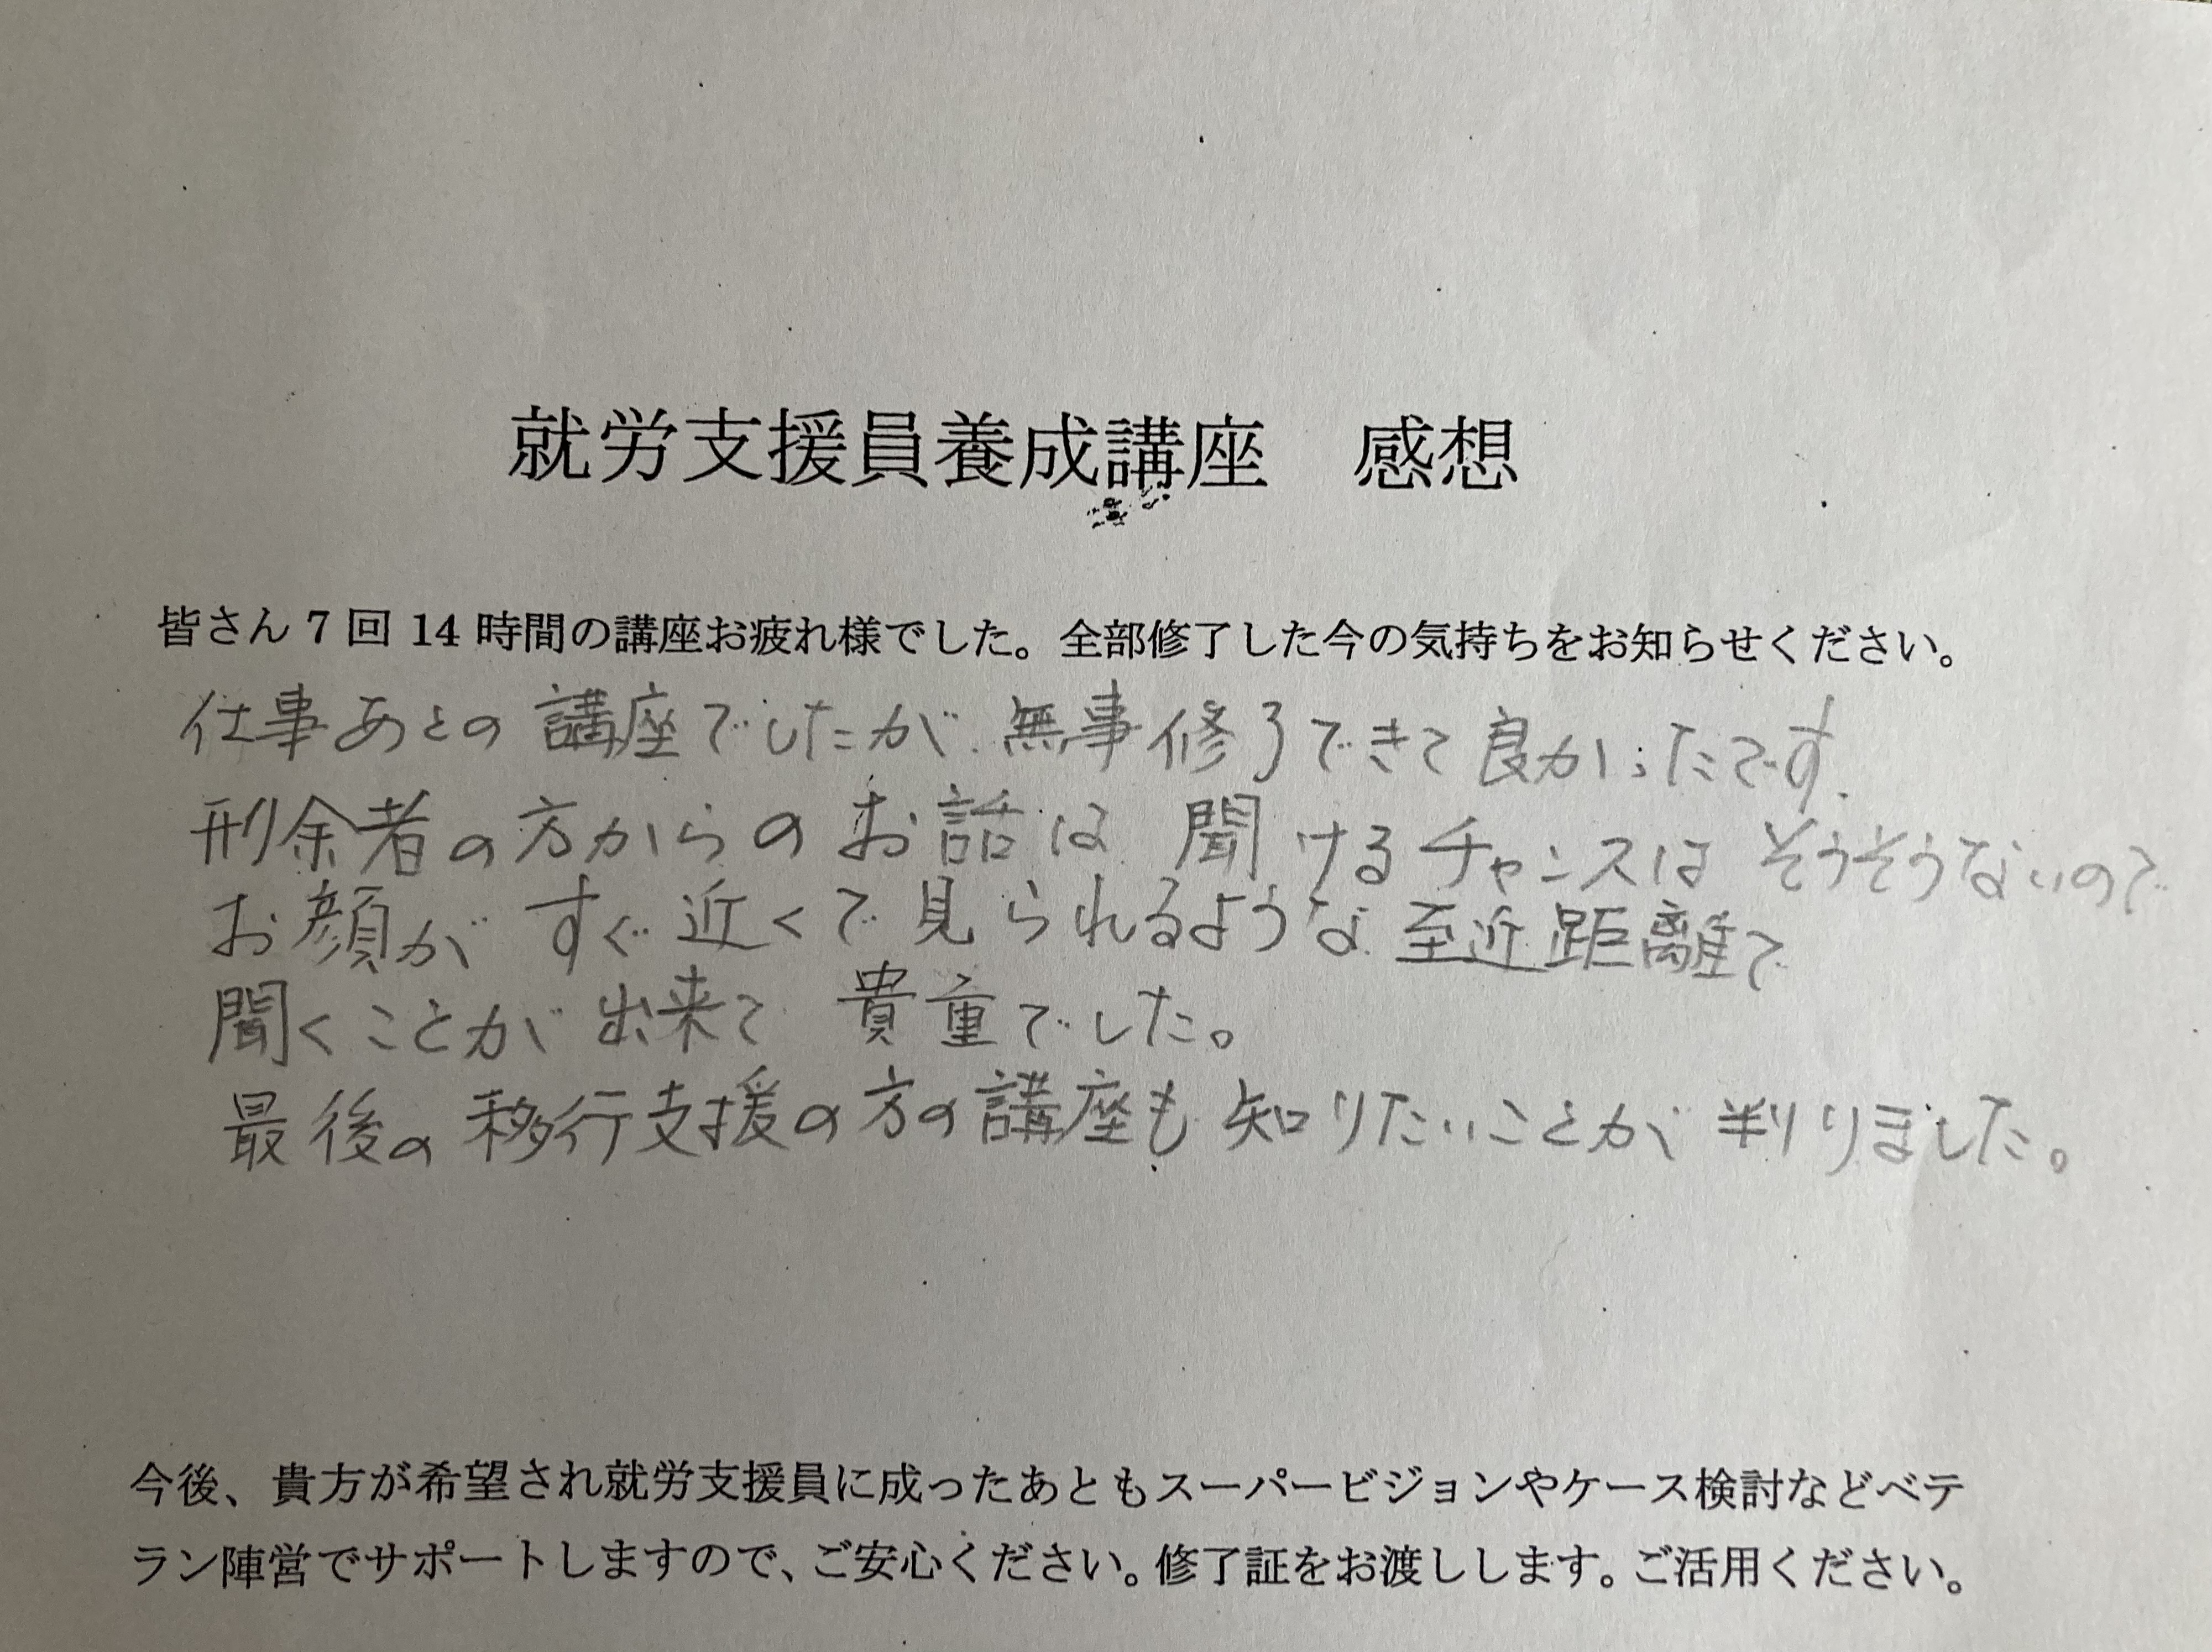 就労支援員養成講座　感想
皆さん7回14時間の講座お疲れ様でした。全部修了した今の気持ちをお知らせください。
仕事あとの講座でしたが、無事修了できて良かったです。
刑余者の方からのお話は聞けるチャンスはそうそうないので
お顔がすぐ近くで見られるような至近距離で
聞くことが出来て貴重でした。
最後の移行支援の方の講座も知りたいことが判りました。
今後、貴方が希望され就労支援員に成ったあともスーパービジョンやケース検討などベテ
ラン陣営でサポートしますので、ご安心ください。修了証をお渡しします。ご活用ください。